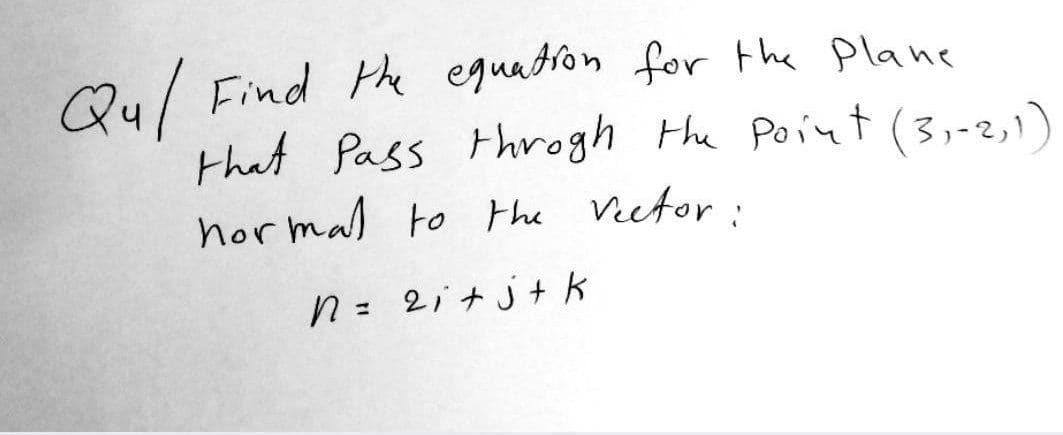 Q4/ Find the equation for the Plane
that Pass throgh the Point (3,-2,1)
normal to the vector :
n = 2i + j + k